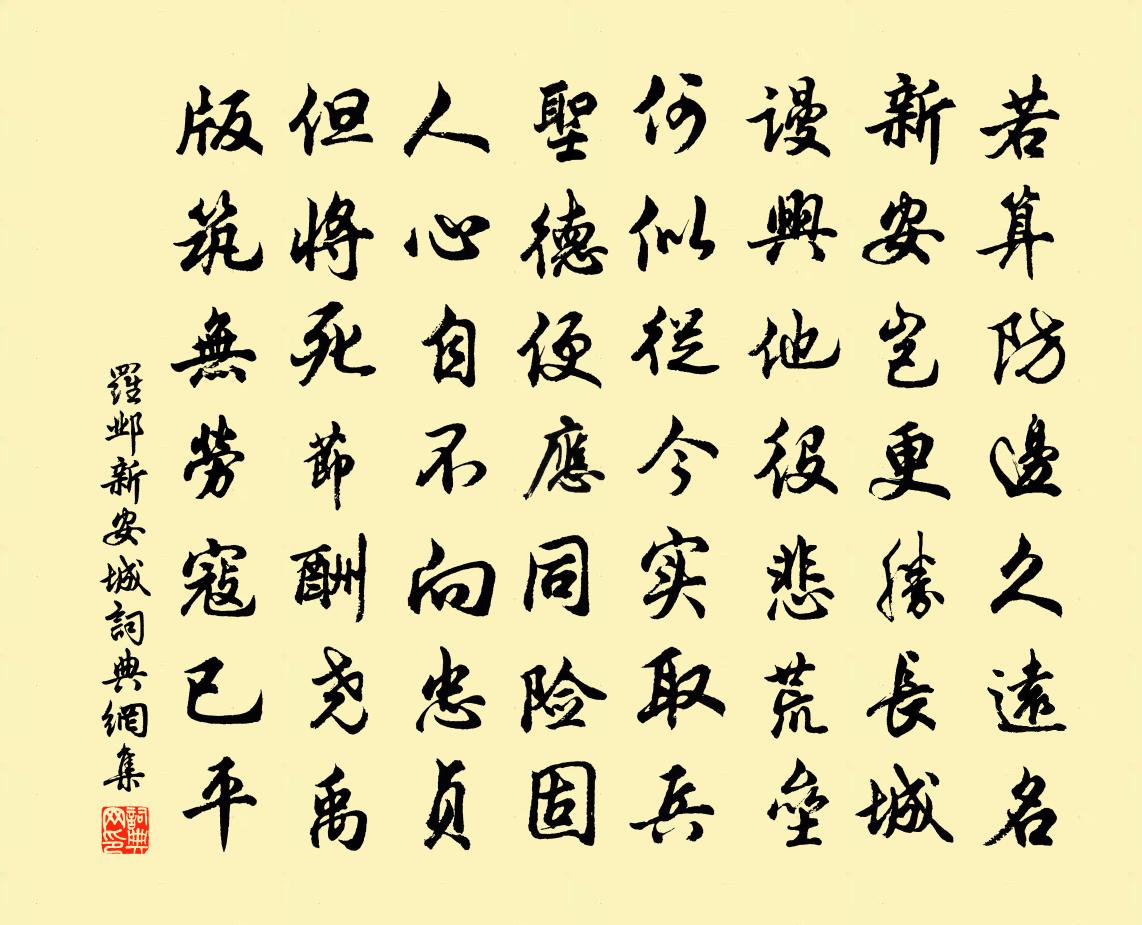 若算防邊久遠名
新安豈更勝長城
謾興他役悲荒壘
何似從今实取兵
聖德便應同險固
人心自不向忠貞
但將死節酬尧禹
版筑無勞寇已平
羅邺新安城詞典網集
詞典网印